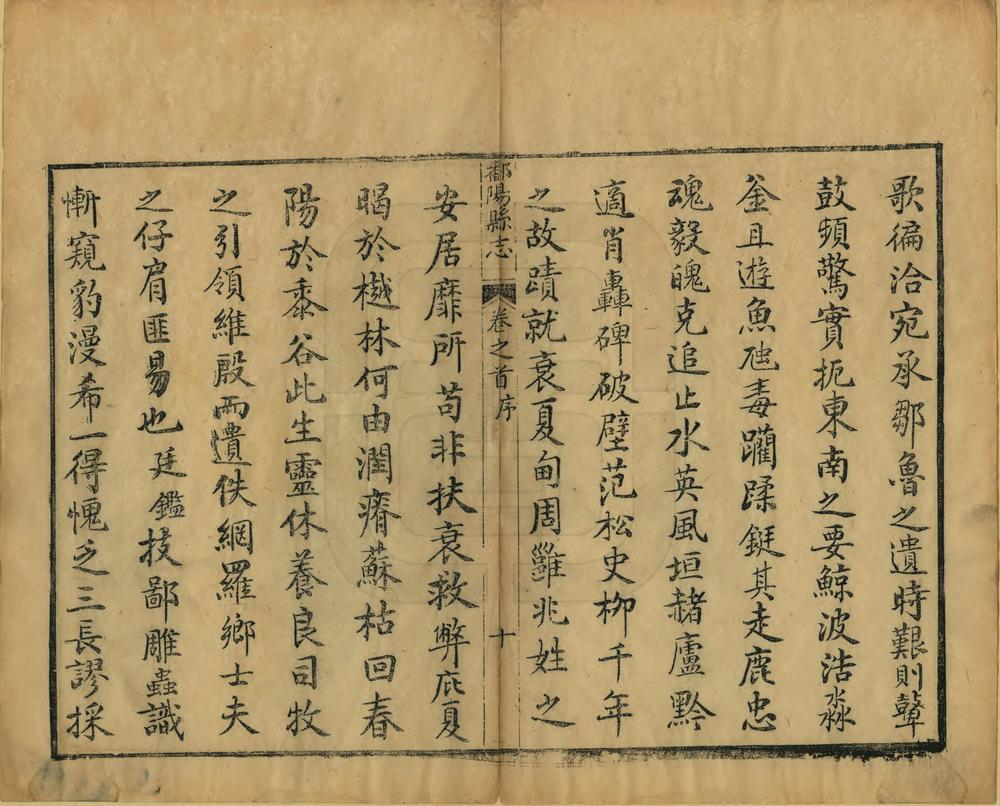 歌徧治宛承鄒魯之遺時艱則鼙
鼓頻驚實扼東南之要鯨波浩淼
釜且遊魚虺毒躪蹂鋌其走鹿忠
魂毅魄克追止水英風垣赭廬黔
適肖轟碑破壁范松史柳千年
之故蹟就衰夏甸周雖兆姓之
鄱陽縣志
卷之首
序
十
安居靡所苟非扶衰救弊庇夏
暍於樾林何由潤瘠蘇枯回春
陽於黍谷此生靈休養良司牧
之引領維殷而遺佚網羅鄉士夫
之仔肩匪易也廷鑑技鄙雕蟲識
慚窺豹漫希一得愧乏三長謬採